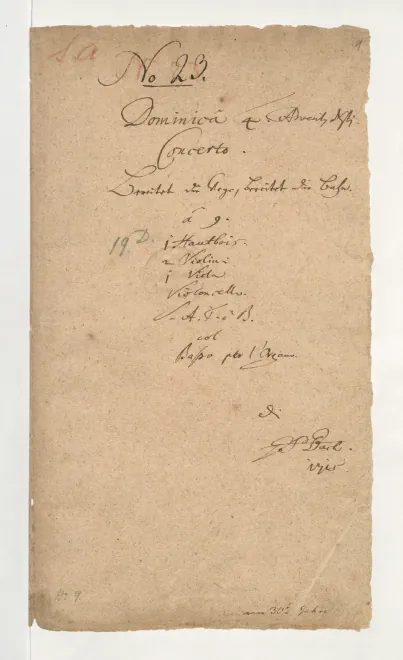 No 23.
Dominicâ 4 Advent
Concerto.
Bereitet die Wege, bereitet die Bahn.
â 9.
19 D.
1 Hautbois.
2 Violini
1 Viola
Violoncello.
S. A. T. è B.
col
Basso per l'Organo
di
Bach.
No 9.